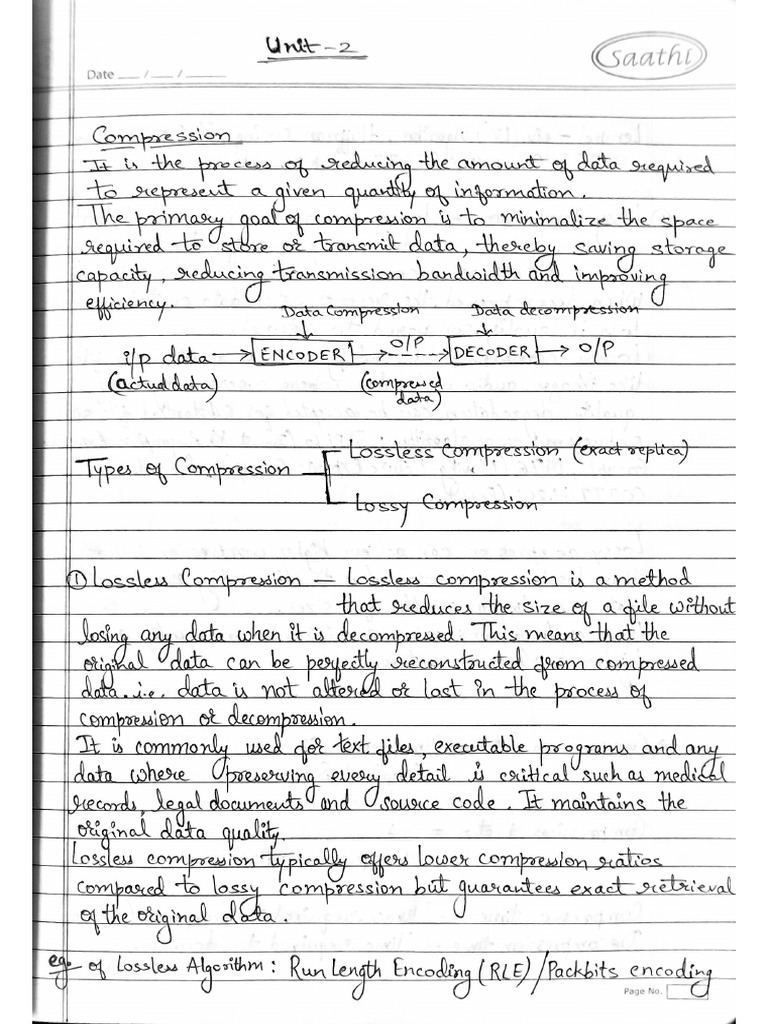 Unit-2
Saathi
Date ___/___/_____
Compression
It is the process of reducing the amount of data required
to represent a given quantity of information.
The primary goal of compression is to minimalize the space
required to store or transmit data, thereby saving storage
capacity, reducing transmission bandwidth and improving
efficiency.
Data Compression Data decompression
i/p data → ENCODER → O/P → DECODER → O/P
(actual data) (compressed
data)
Types of Compression
Lossless Compression (exact replica)
Lossy Compression
① Lossless Compression — Lossless compression is a method
that reduces the size of a file without
losing any data when it is decompressed. This means that the
original data can be perfectly reconstructed from compressed
data. i.e. data is not altered or lost in the process of
compression or decompression.
It is commonly used for text files, executable programs and any
data where preserving every detail is critical such as medical
records, legal documents and source code. It maintains the
original data quality.
Lossless compression typically offers lower compression ratios
compared to lossy compression but guarantees exact retrieval
of the original data.
eg. of Lossless Algorithm: Run Length Encoding (RLE)/Packbits encoding
Page No.